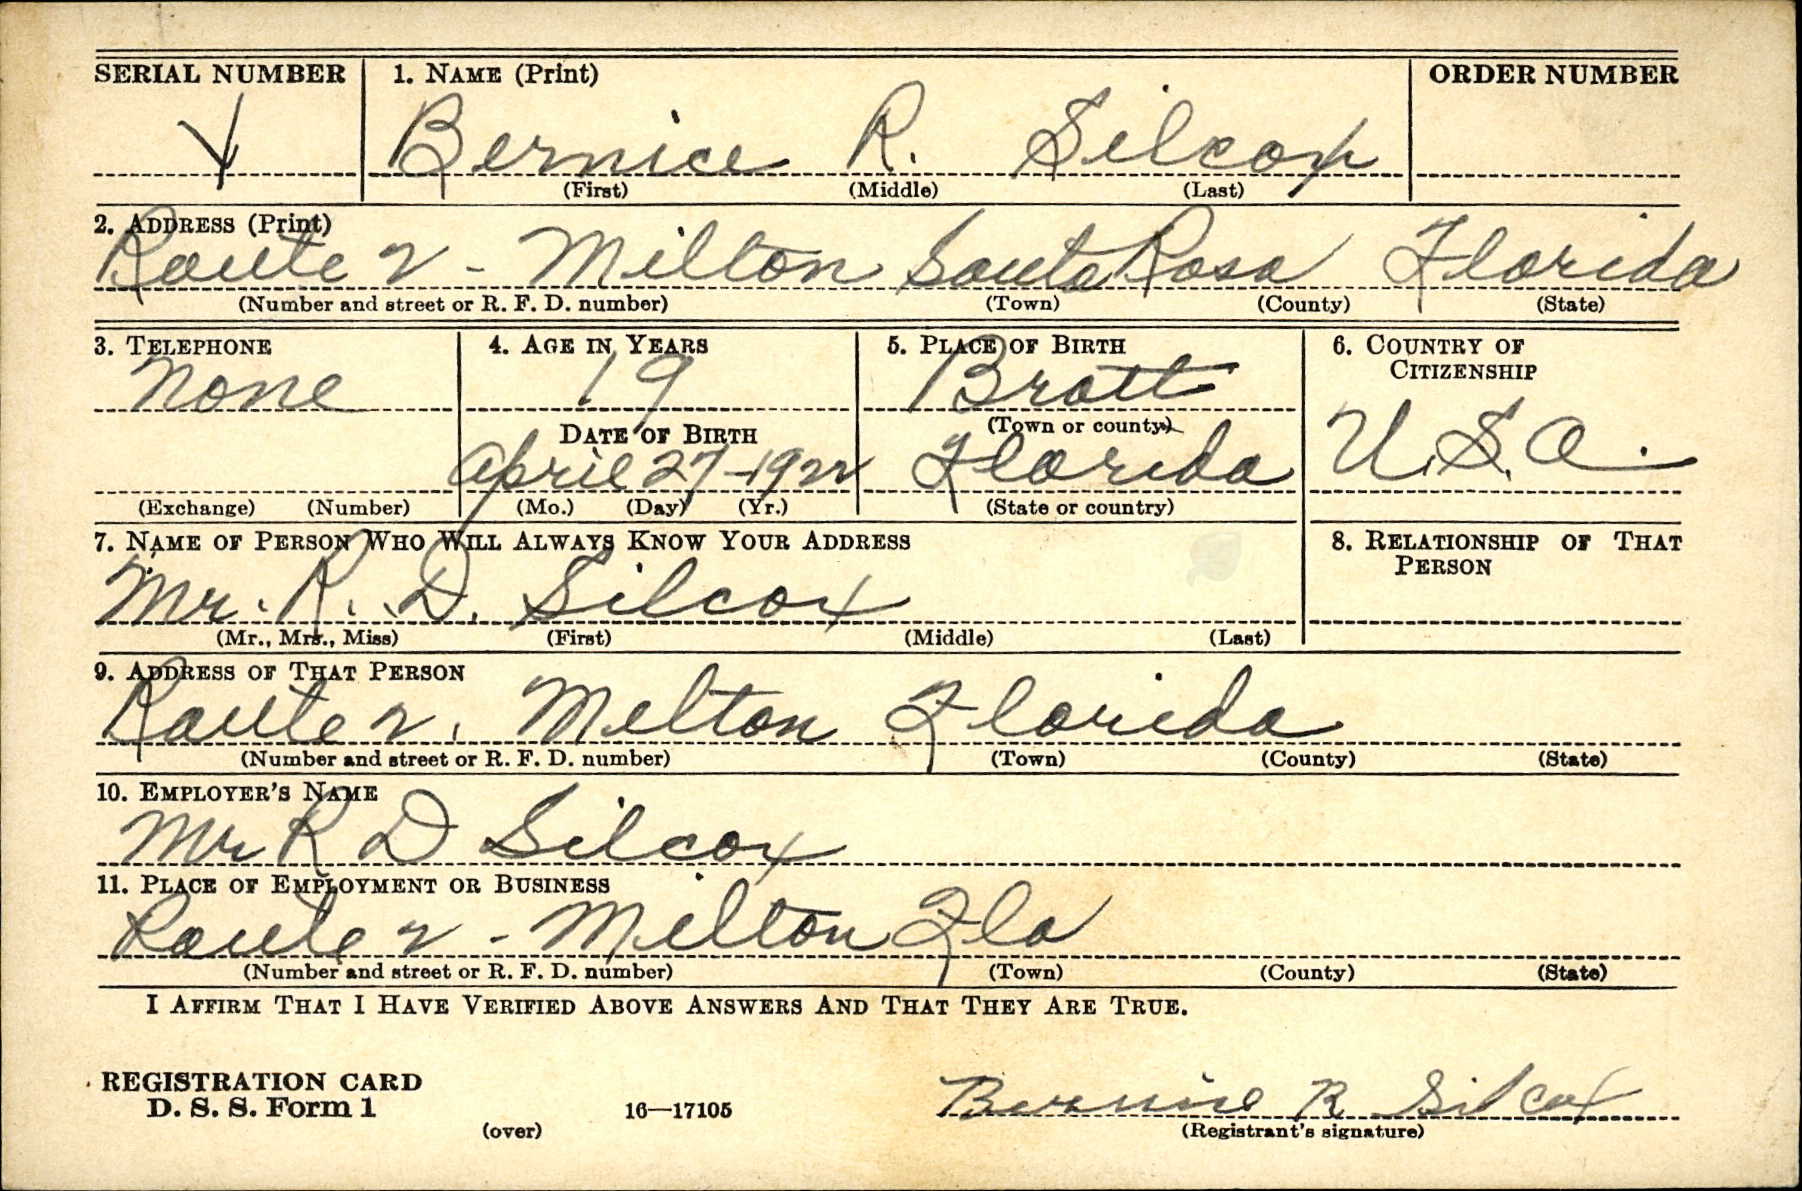 SERIAL NUMBER 1. NAME (Print) ORDER NUMBER
Bernice R. Silcox
(First) (Middle) (Last)
2. ADDRESS (Print)
Route 2 - Milton Santa Rosa Florida
(Number and street or R. F. D. number) (Town) (County) (State)
3. TELEPHONE 4. AGE IN YEARS 5. PLACE OF BIRTH 6. COUNTRY OF
CITIZENSHIP
None 19 Bratt
(Town or county)
DATE OF BIRTH
U.S.A.
April 27-1922 Florida
(Exchange) (Number) (Mo.) (Day) (Yr.) (State or country)
7. NAME OF PERSON WHO WILL ALWAYS KNOW YOUR ADDRESS 8. RELATIONSHIP OF THAT
PERSON
Mr. R. D. Silcox
(Mr., Mrs., Miss) (First) (Middle) (Last)
9. ADDRESS OF THAT PERSON
Route 2. Milton Florida
(Number and street or R. F. D. number) (Town) (County) (State)
10. EMPLOYER'S NAME
Mr R D Silcox
11. PLACE OF EMPLOYMENT OR BUSINESS
Route 2 - Milton Fla
(Number and street or R. F. D. number) (Town) (County) (State)
I AFFIRM THAT I HAVE VERIFIED ABOVE ANSWERS AND THAT THEY ARE TRUE.
REGISTRATION CARD
D. S. S. Form 1 16—17105
Bernice R Silcox
(over) (Registrant's signature)